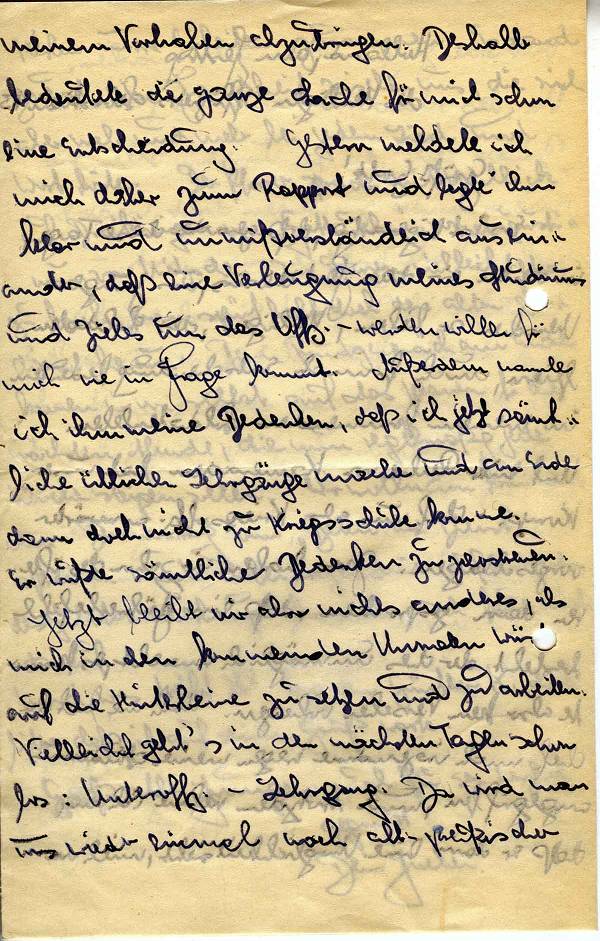 meinem Vorhaben abzubringen. Deshalb
bedeutete die ganze Sache für mich schon
eine Entscheidung. Gestern meldete ich
mich daher zum Rapport und legte ihm
klar und unmißverständlich ausein„
ander, daß eine Verleugnung meines Studiums
und Zieles um des Uffz. – werden willen für
mich nie in Frage kommt. Außerdem nannte
ich ihm meine Bedenken, daß ich jetzt sämt„
liche üblichen Lehrgänge mache und am Ende
dann doch nicht zur Kriegsschule komme.
Er wußte sämtliche Bedenken zu zerstreuen.
Jetzt bleibt mir aber nichts anderes, als
mich in den kommenden
auf die Hinterbeine zu setzen und zu arbeiten.
Vielleicht geht's in den nächsten Tagen schon
los: Unteroffz. – Lehrgang. Da wird man
uns wieder einmal nach alt-preußischer